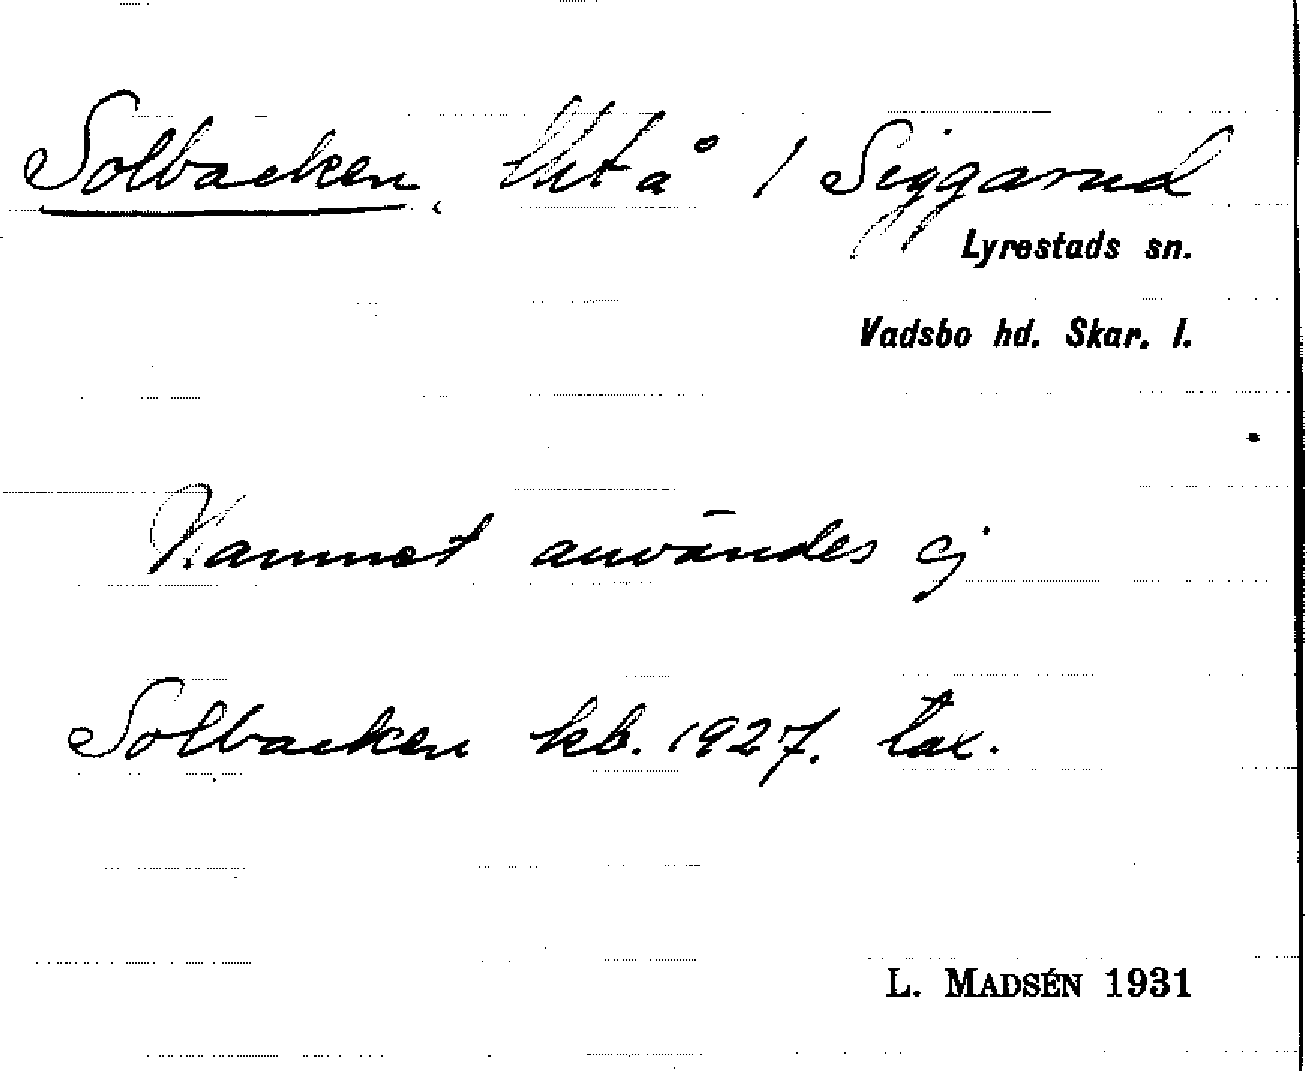 Solbacken, lht å 1 Siggarud
Lyrestads sn.
Vadsbo hd. Skar. l.
Namnet användes ej
Solbacken kb. 1927. tax.
L. MADSÉN 1931